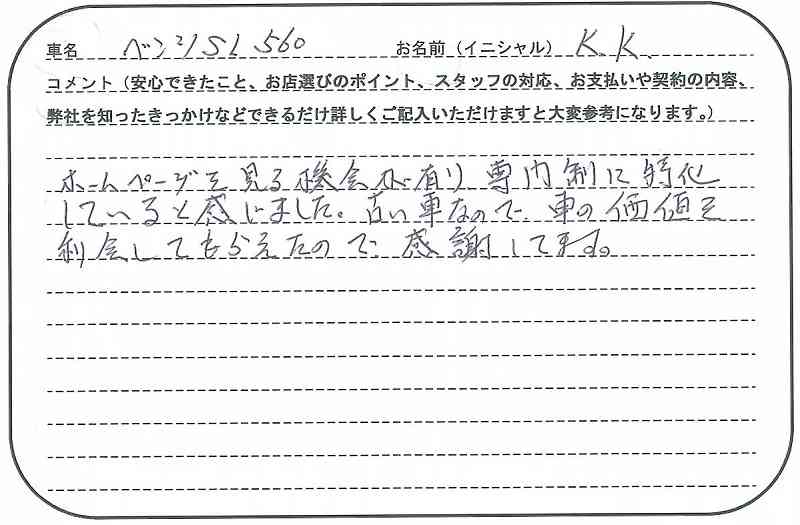 車名 ベンツSL560 お名前（イニシャル） K.K.
コメント（安心できたこと、お店選びのポイント、スタッフの対応、お支払いや契約の内容、
弊社を知ったきっかけなどできるだけ詳しくご記入いただけますと大変参考になります。）
ホームページを見る機会が有り 専門制に特化
していると感じました。古い車なので、車の価値を
判会してもらえたので、感謝してます。